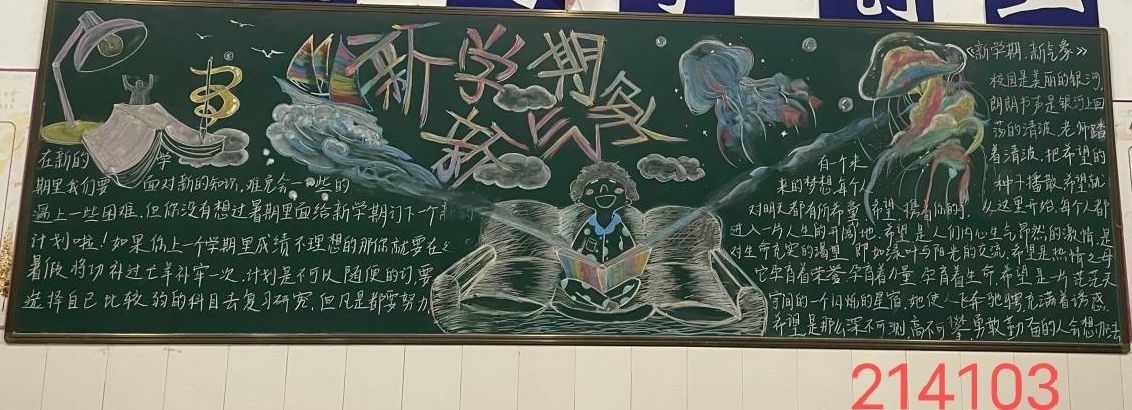 新学期
新气象
在新的 学
期里我们要 面对新的知识,难免会一些的
遇上一些困难,但你没有想过暑期里面给新学期订下一个新的
计划啦!如果你上一个学期里成绩不理想的那你就要在
暑假将功补过亡羊补牢一次,计划是不可以随便的订,要
选择自己比较弱的科目去复习研究,但凡是都要努力
《新学期,新气象》
校园是美丽的银河,
朗朗书声是银河上回
荡的清波,老师踏
着清波,把希望的
种子播散,希望就
从这里开始,每个人都
有一个未
来的梦想,每个人
对明天都有所希冀,希望,携着你的手,
进入一片人生的开阔地,希望是人们内心生气昂然的激情,是
对生命充实的渴望,即如绿叶与阳光的交流,希望是热情之母
它孕育着荣誉,孕育着力量,孕育着生命,希望是一片茫茫天
宇间的一个闪烁的星宿,她使人飞奔驰骋,充满着诱惑,
希望是那么深不可测,高不可攀,勇敢勤奋的人会想办法
214103